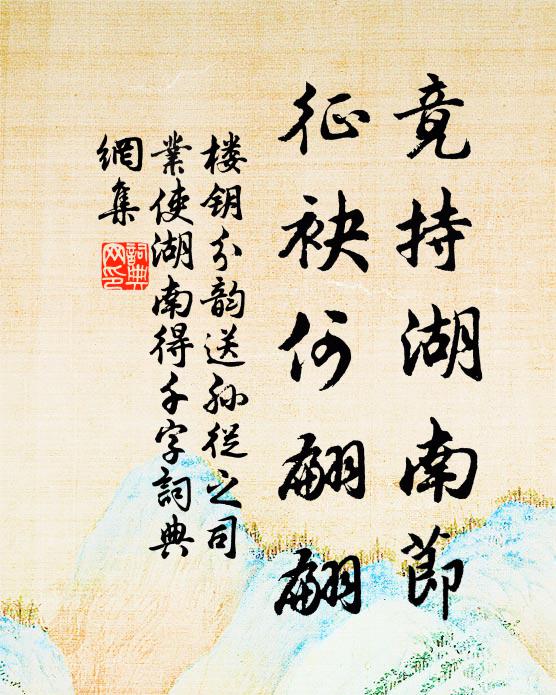 竟持湖南節
征袂何翩翩
楼钥分韵送孙從之司
業使湖南得千字詞典
網集
詞典
网印